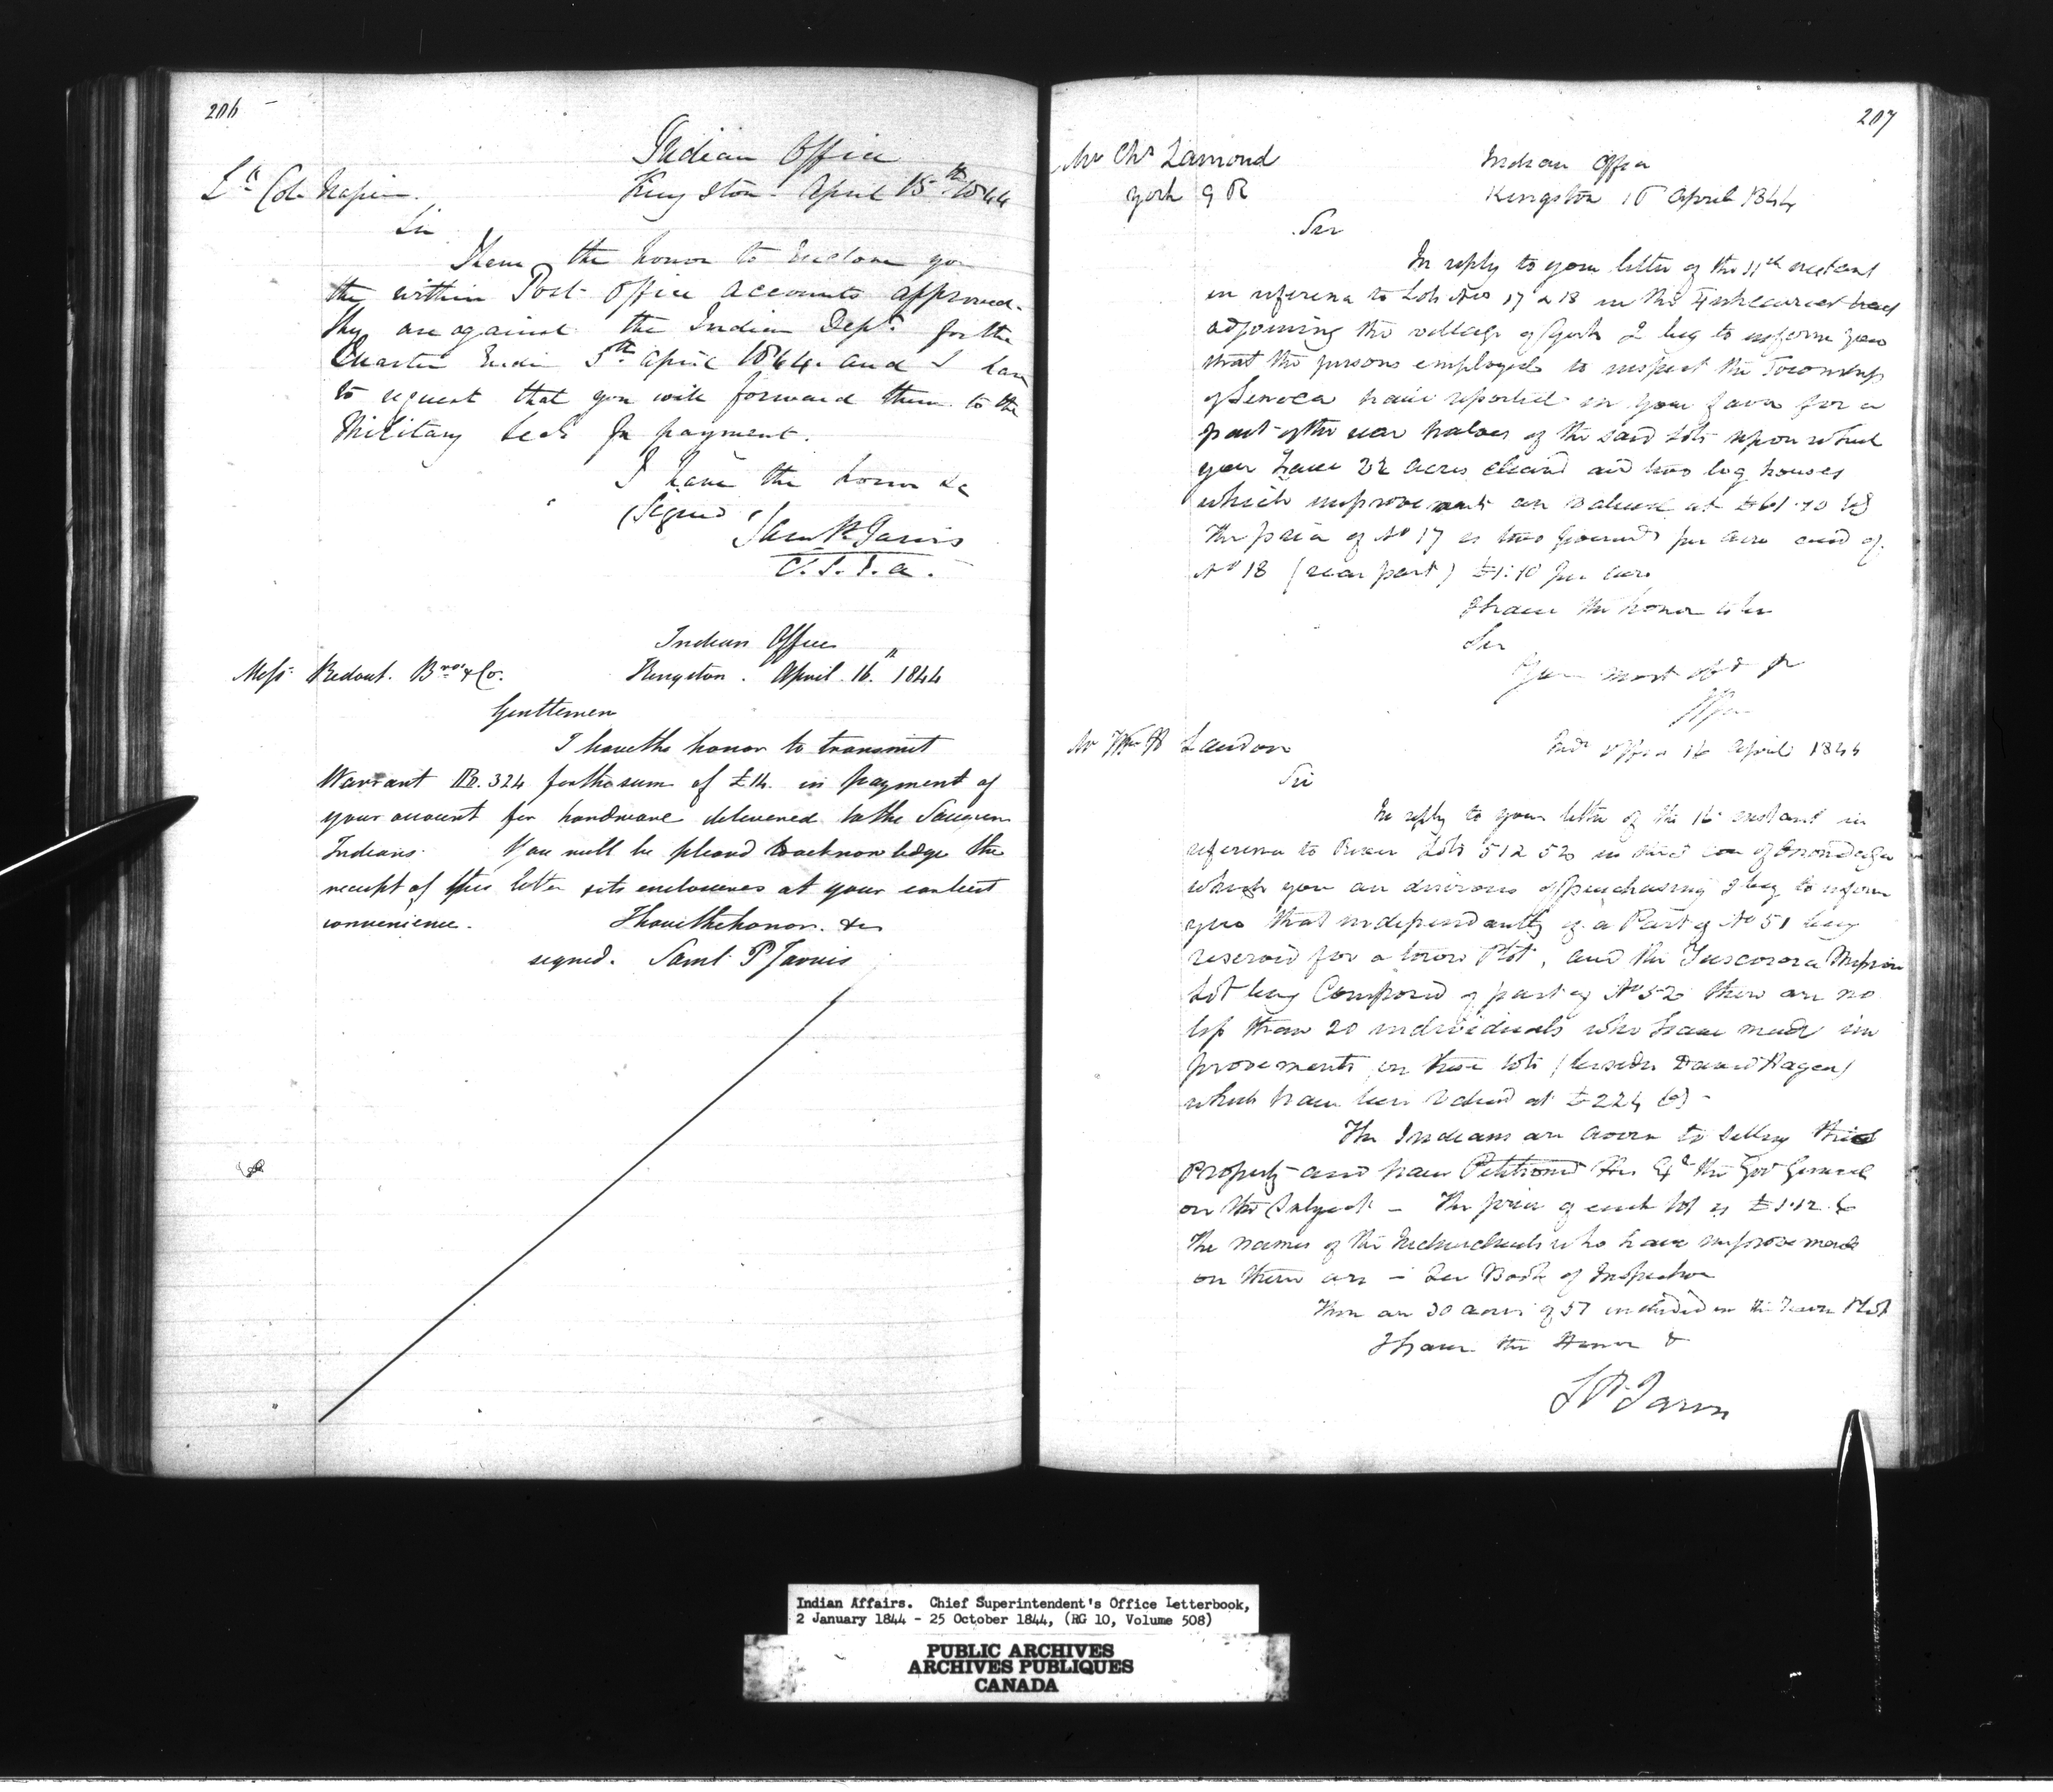 206
Indian Office
Lt. Col. Napier. Kingston. April 15th 1844
Sir
I have the honor to Enclose you
the within Post Office accounts approved.
They are against the Indian Dept. for the
Quarter Endin 5th April 1844. and I have
to request that you will forward them to the
Military Secy for payment.
I have the honor &c
(Signed)
Saml P Jarvis
C.S.I.A.
Indian Office
Messrs Ridout. Bros & Co. Kingston. April 16th 1844
Gentlemen
I have the honor to transmit
Warrant No. 324 for the sum of £14. in payment of
your account for hardware delivered to the Saugeen
Indians. You will be pleased to acknowledge the
receipt of this letter & its enclosures at your earliest
convenience. I have the honor. &c
signed. Saml. P Jarvis
207
Mr Chs Lamond Indian Office
York G R Kingston 16 April 1844
Sir
In reply to your letter of the 11th instant
in reference to Lots Nos 17 & 18 in the tract
adjoining the village of York I beg to inform you
that the persons employed to inspect the Township
of Seneca have reported in your favor for a
part of the rear halves of the said Lots upon which
you have 32 acres cleared and two log houses
which improvements are valued at £61.10
The price of No 17 is two pounds per acre and of
No 18 (rear part) £1.10 per acre
I have the honor to be
Sir
Your most obt
Mr Wm H Landon Indn Office 16 April 1844
Sir
In reply to your letter of the 12 instant in
reference to River Lots 51 & 52 in the of Onondaga
which you are desirous of purchasing I beg to inform
you that independantly of a Part of No 51 being
reserved for a town Plot, and the Tuscorora Mission
Lot being Composed of part of No 52 there are no
less than 20 individuals who have made im
provements on these lots (besides David Hagen)
which have been valued at £224
The Indians are averse to selling this
Property and have Petitioned His Exy the Gov General
on the Subject - The price of each lot is £1.12.6
The names of the Individuals who have improvements
on them are - See Book of Inspection
There are 30 acres of 51 included in the Town Plot
I have the Honor &
S P Jarvis
Indian Affairs. Chief Superintendent's Office Letterbook,
2 January 1844 - 25 October 1844, (RG 10, Volume 508)
PUBLIC ARCHIVES
ARCHIVES PUBLIQUES
CANADA